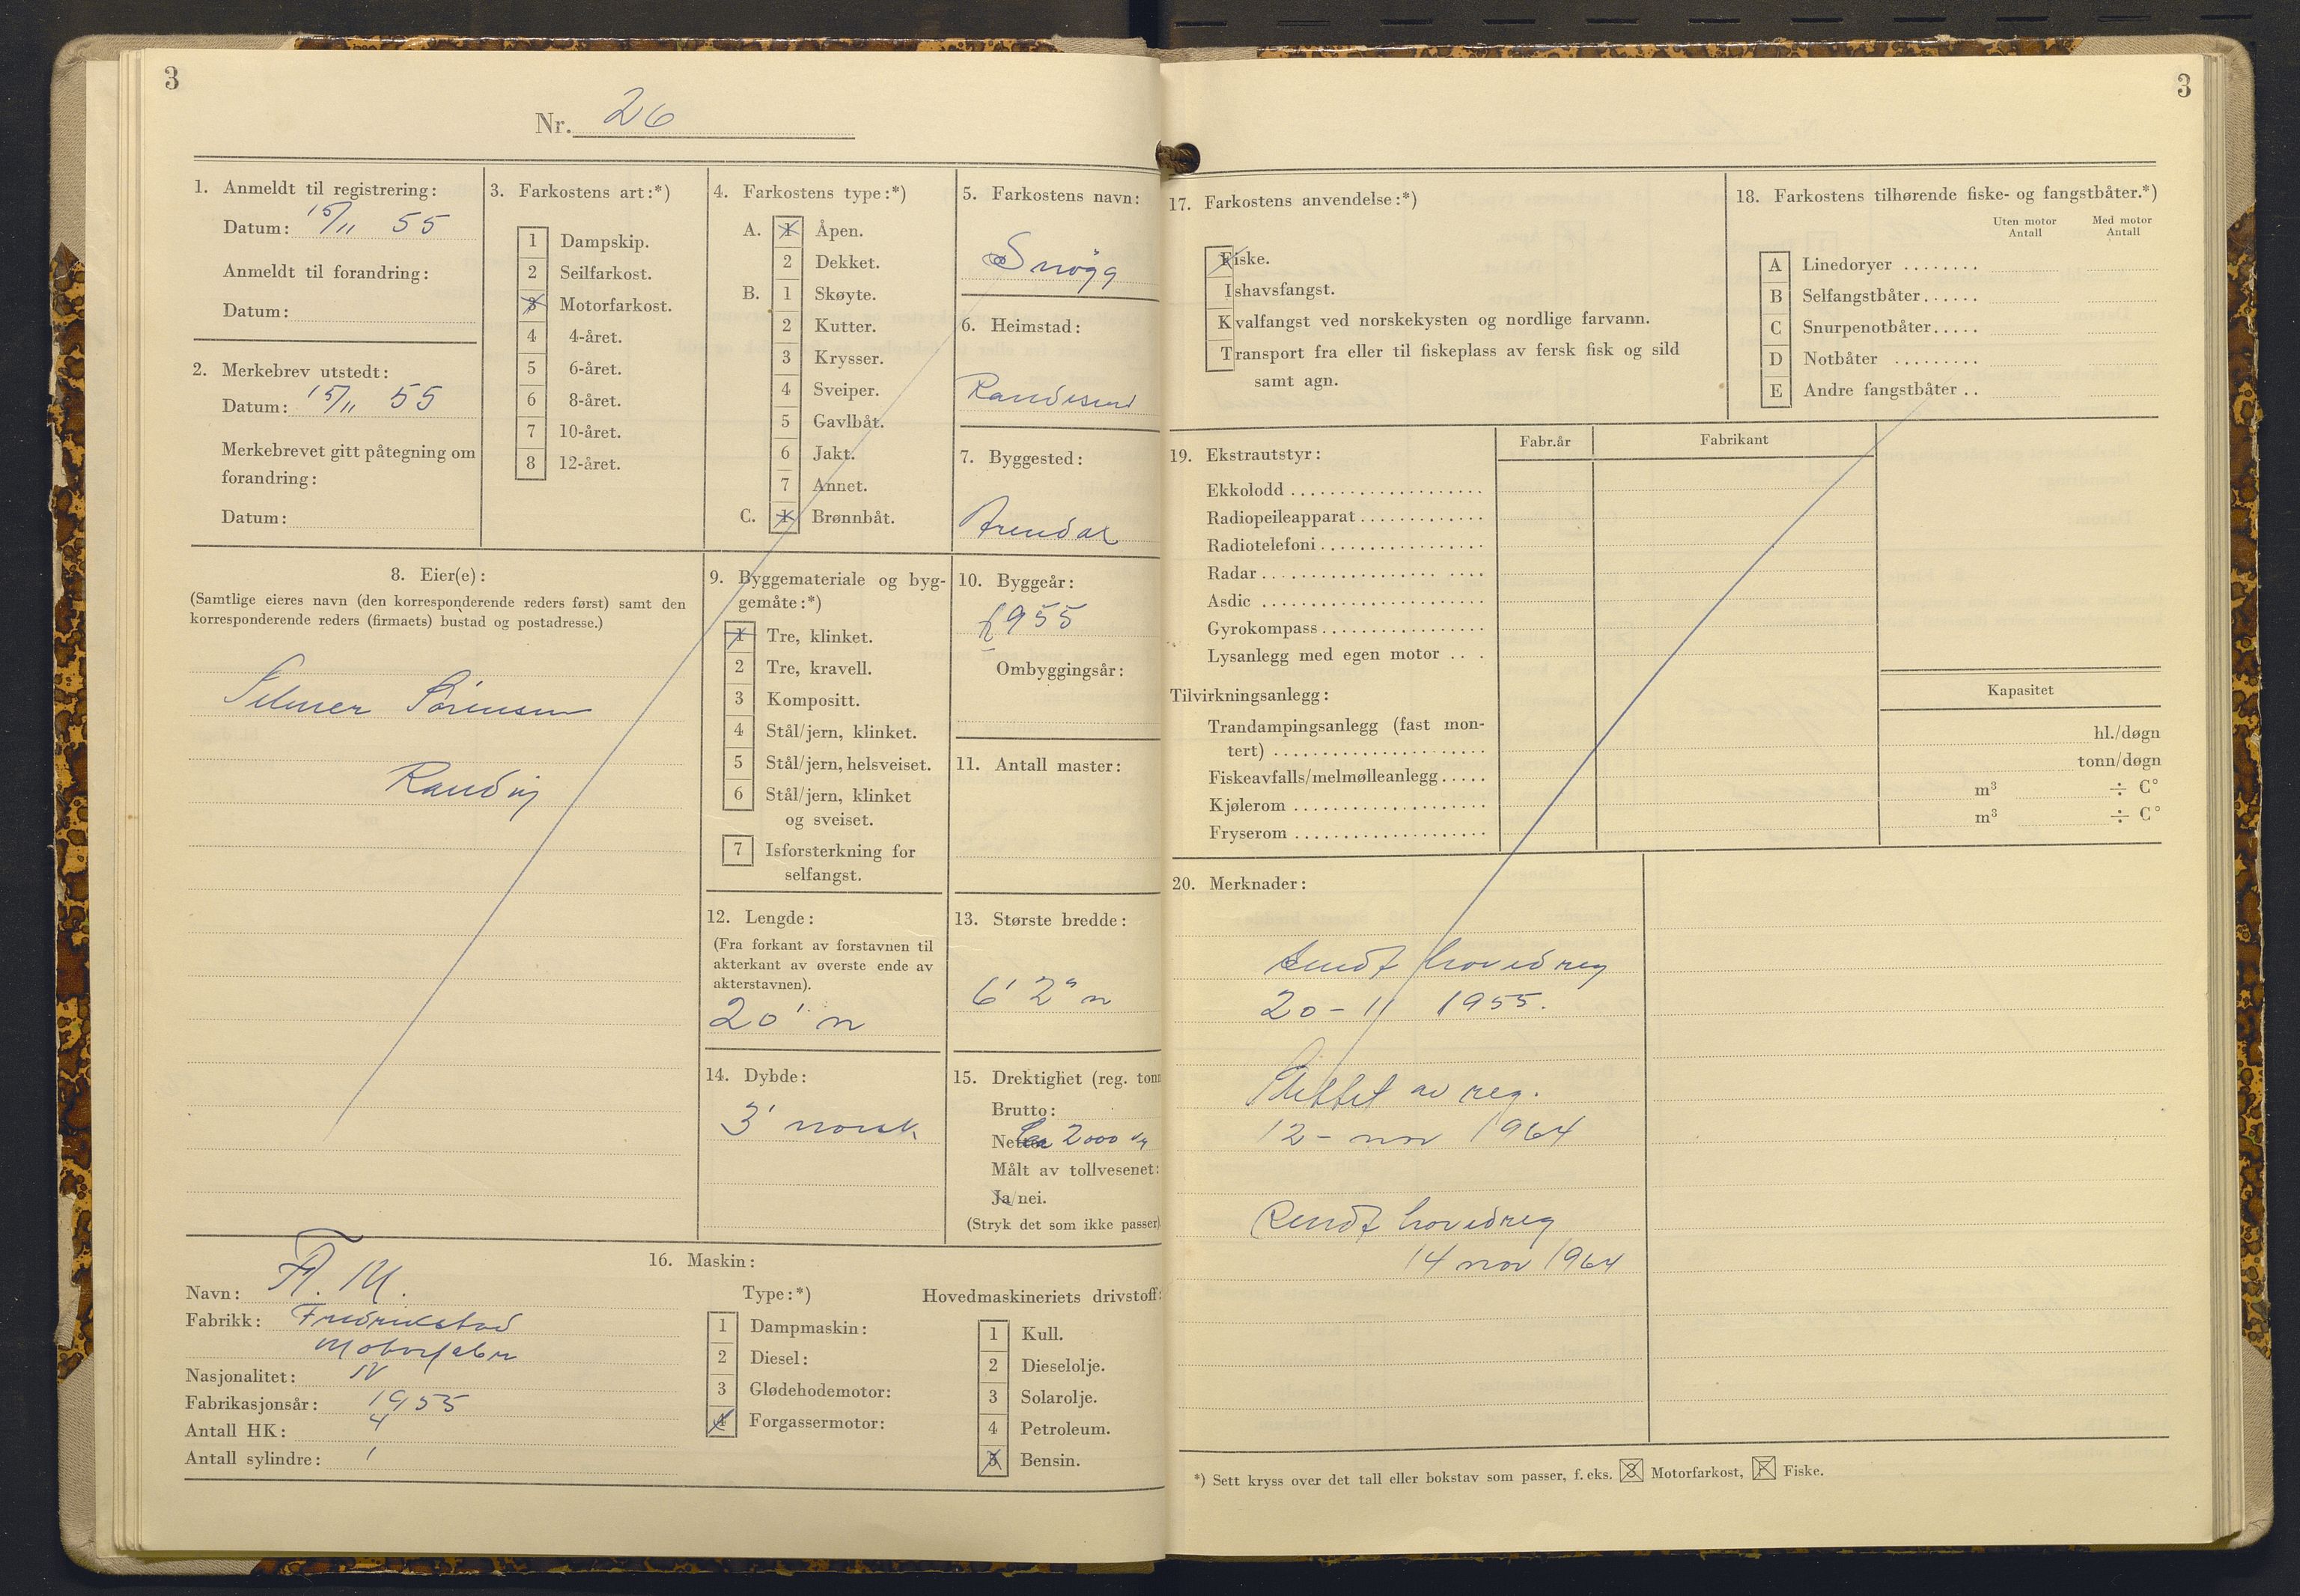 3
Nr. 26
1. Anmeldt til registrering:
Datum: 15/11 55
Anmeldt til forandring:
Datum:
2. Merkebrev utstedt:
Datum: 15/11 55
Merkebrevet gitt påtegning om
forandring:
Datum:
3. Farkostens art:*)
1 Dampskip.
2 Seilfarkost.
3 Motorfarkost.
4 4-året.
5 6-året.
6 8-året.
7 10-året.
8 12-året.
4. Farkostens type:*)
A. 1 Åpen.
2 Dekket.
B. 1 Skøyte.
2 Kutter.
3 Krysser.
4 Sveiper.
5 Gavlbåt.
6 Jakt.
7 Annet.
C. 1 Brønnbåt.
5. Farkostens navn:
Snögg
6. Heimstad:
Randesund
7. Byggested:
Arendal
8. Eier(e):
(Samtlige eieres navn (den korresponderende reders først) samt den
korresponderende reders (firmaets) bustad og postadresse.)
Selmer Sörensen
Randvig
9. Byggemateriale og byg-
gemåte:*)
1 Tre, klinket.
2 Tre, kravell.
3 Kompositt.
4 Stål/jern, klinket.
5 Stål/jern, helsveiset.
6 Stål/jern, klinket
og sveiset.
7 Isforsterkning for
selfangst.
10. Byggeår:
1955
Ombyggingsår:
11. Antall master:
12. Lengde:
(Fra forkant av forstavnen til
akterkant av øverste ende av
akterstavnen).
20' n
13. Største bredde:
6' 2" n
14. Dybde:
3' norsk
15. Drektighet (reg. tonn
Brutto:
Netto: 2000
Målt av tollvesenet:
Ja/nei.
(Stryk det som ikke passer)
16. Maskin:
Navn: F. M.
Fabrikk: Fredrikstad
Motorfabr
Nasjonalitet: N
Fabrikasjonsår: 1955
Antall HK: 4
Antall sylindre: 1
Type:*)
1 Dampmaskin:
2 Diesel:
3 Glødehodemotor:
4 Forgassermotor:
Hovedmaskineriets drivstoff:
1 Kull.
2 Dieselolje.
3 Solarolje.
4 Petroleum.
5 Bensin.
3
17. Farkostens anvendelse:*)
Fiske.
Ishavsfangst.
Kvalfangst ved norskekysten og nordlige farvann.
Transport fra eller til fiskeplass av fersk fisk og sild
samt agn.
18. Farkostens tilhørende fiske- og fangstbåter.*)
Uten motor Med motor
Antall Antall
A Linedoryer ........
B Selfangstbåter......
C Snurpenotbåter.....
D Notbåter .........
E Andre fangstbåter ..
19. Ekstrautstyr: Fabr.år Fabrikant
Ekkolodd ....................
Radiopeileapparat.............
Radiotelefoni.................
Radar.................. ....
Asdic .......................
Gyrokompass.................
Lysanlegg med egen motor .. .
Tilvirkningsanlegg: Kapasitet
Trandampingsanlegg (fast mon-
tert) ...................... hl./døgn
Fiskeavfalls/melmølleanlegg..... tonn/døgn
Kjølerom .................... m³ ÷ C°
Fryserom .................... m³ ÷ C°
20. Merknader:
Sendt hovedreg
20-11 1955.
Slettet av reg.
12- nov 1964
Sendt hovedreg
14 nov 1964
*) Sett kryss over det tall eller bokstav som passer, f. eks. 3 Motorfarkost, F Fiske.